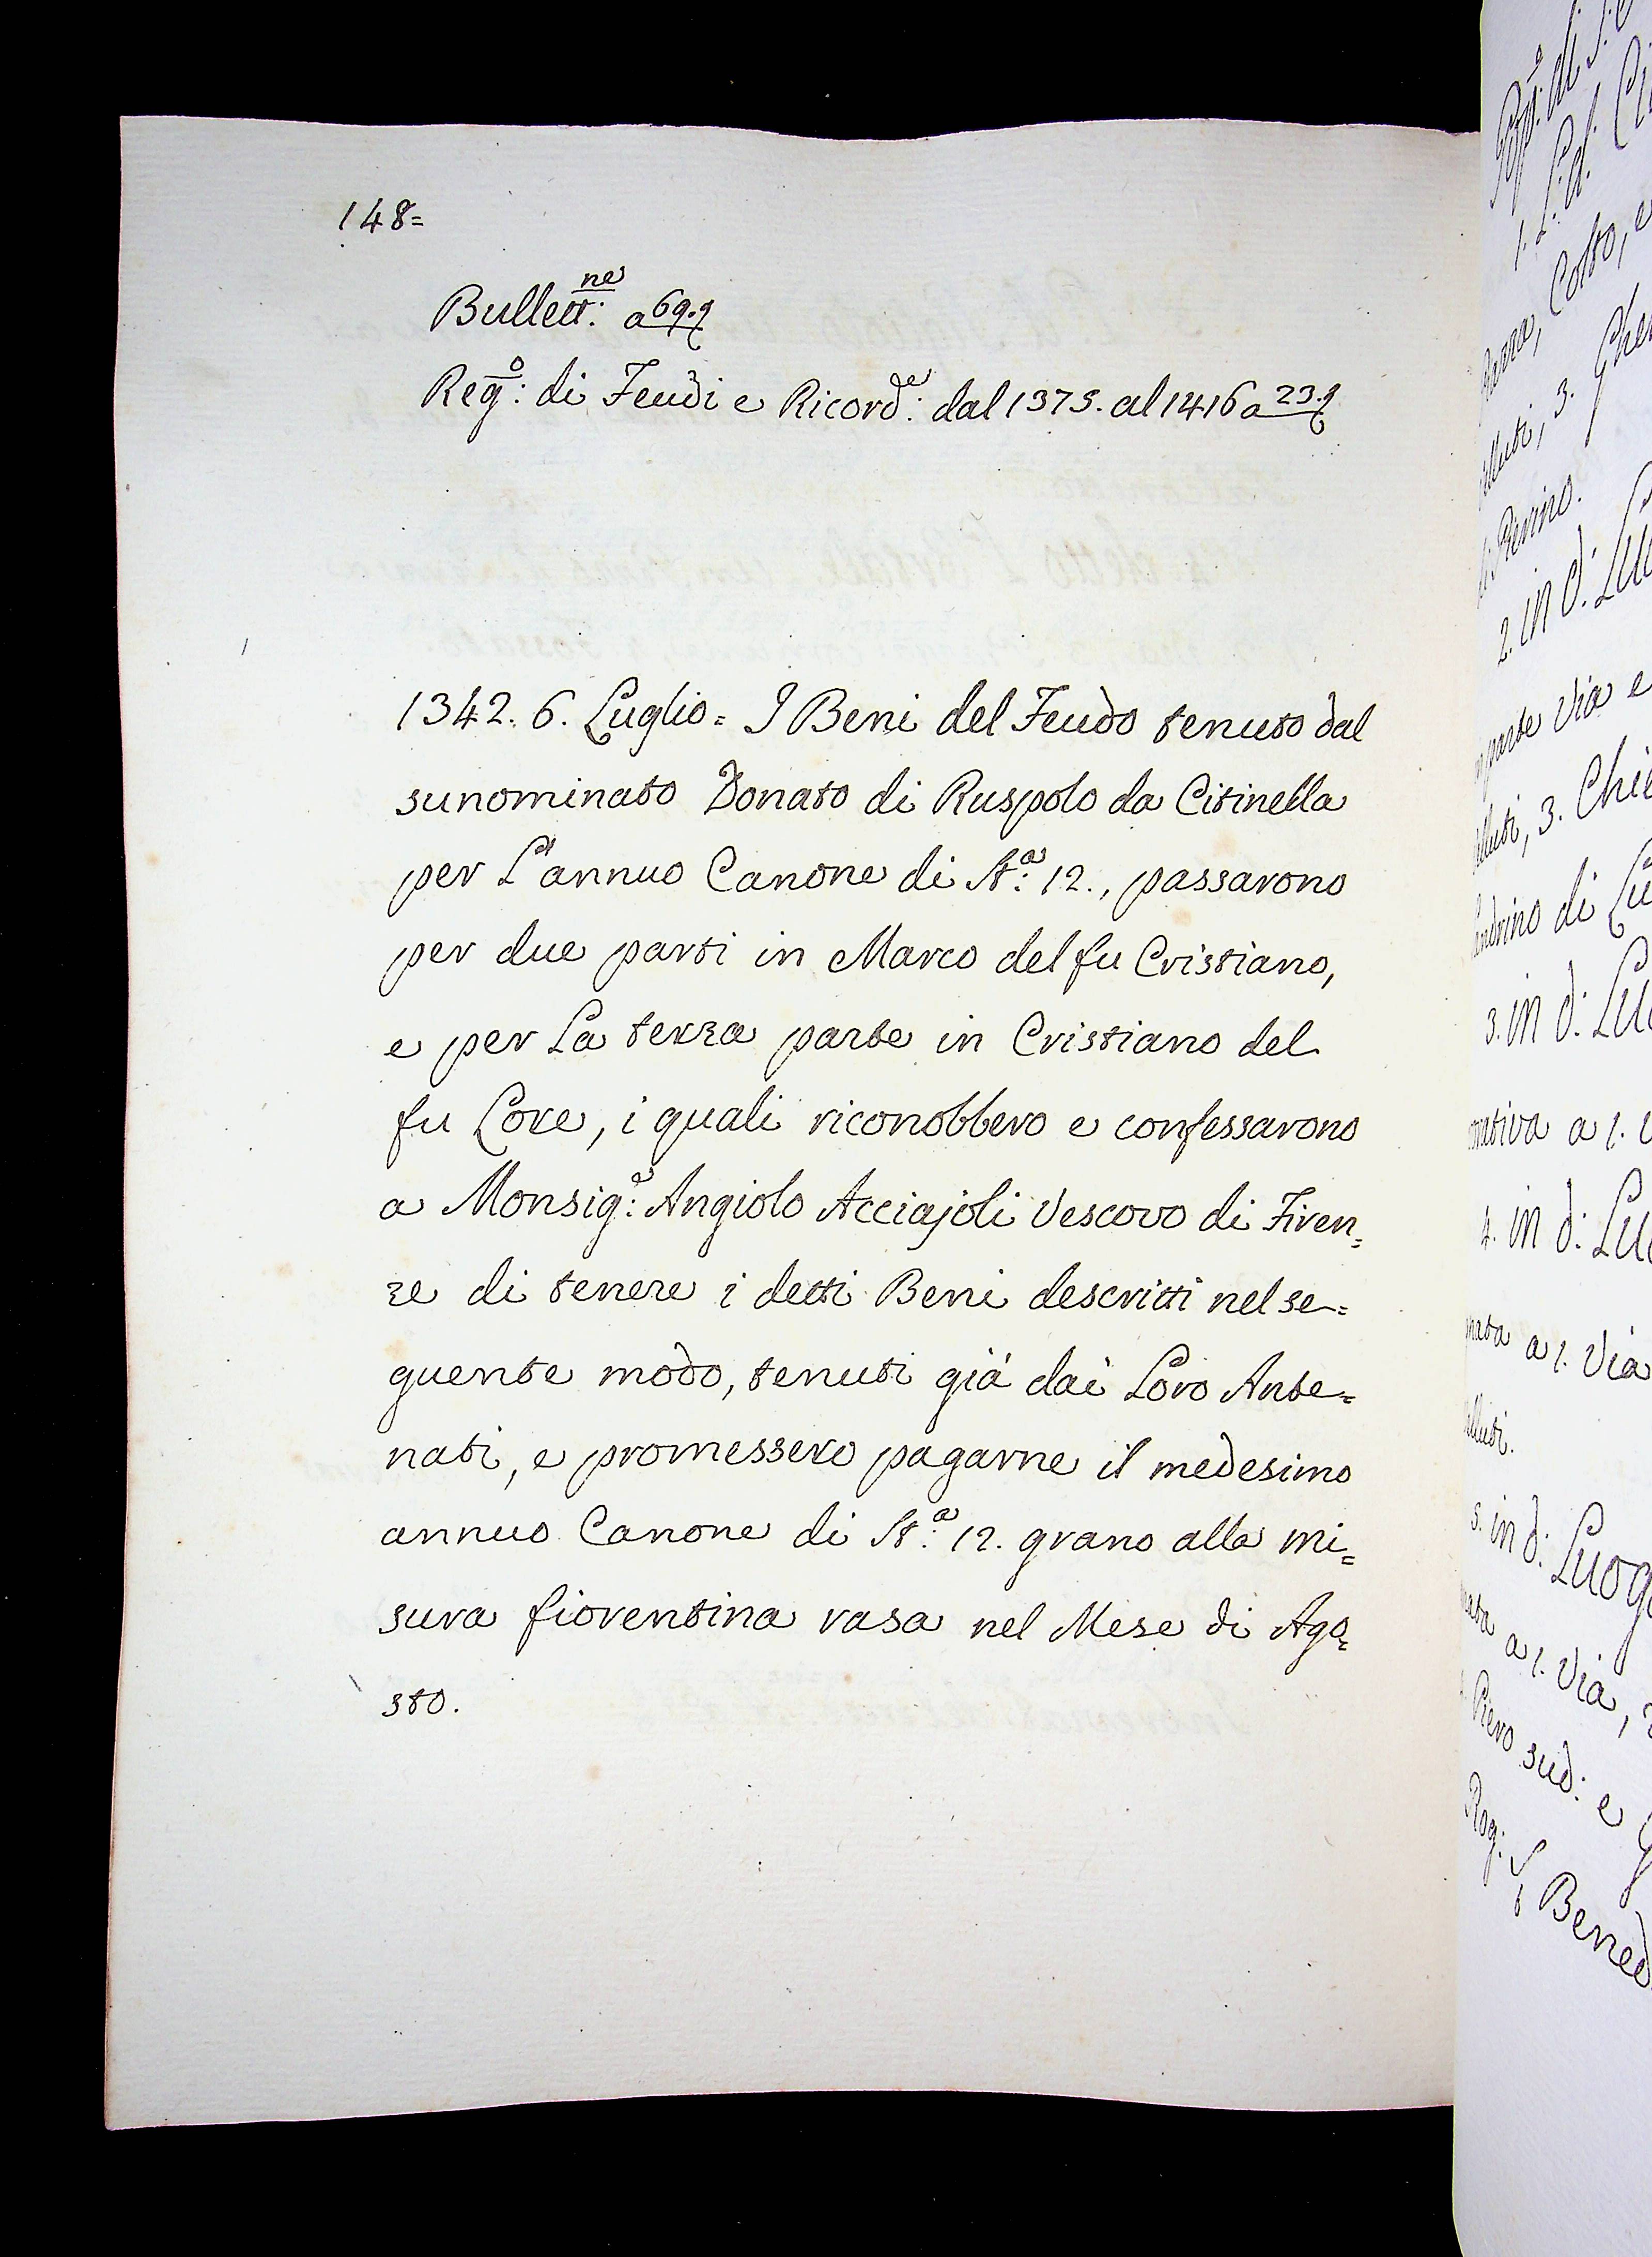 148=
Bullett:ne a 69.
Reg:o di Feudi e Ricord:e dal 1375. al 1416 a 23.
1342. 6. Luglio = I Beni del Feudo tenuto dal
sunominato Donato di Ruspolo da Citinella
per L'annuo Canone di St:a 12., passarono
per due parti in Marco del fu Cristiano,
e per La terza parte in Cristiano del
fu Lore, i quali riconobbero e confessarono
a Monsig:e Angiolo Acciajoli Vescovo di Firen=
ze di tenere i detti Beni descritti nel se=
guente modo, tenuti già dai Loro Ante=
nati, e promessero pagarne il medesimo
annuo Canone di St:a 12. grano alla mi=
sura fiorentina rasa nel Mese di Ago=
sto.
1. L. d.
Costo, e
2. in d: Lu
parte Via e
3. Chi
di Lu
3. in d: Lu
a 1.
4. in d: Lu
a 1. Via
5. in d: Luog
a 1. Via,
Piero sud: e
Rog:
Bened